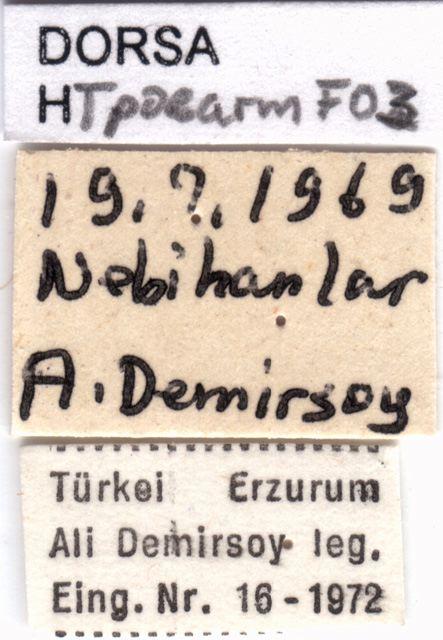 DORSA
HTpoearm F03
19.7.1969
Nebihanlar
A. Demirsoy
Türkei Erzurum
Ali Demirsoy leg.
Eing. Nr. 16 - 1972